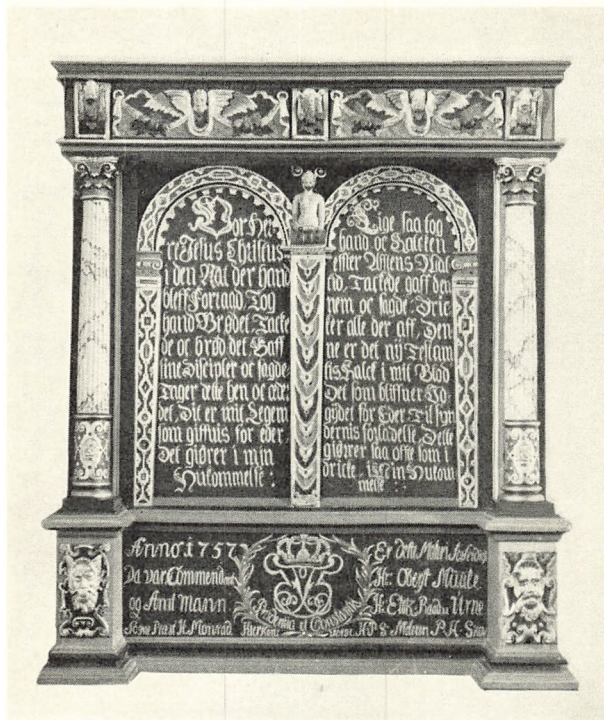 Vor Her-
re Jesus Christus
i den Nat der hand
bleff Forraad Tog
hand Brødet Tacke
de oc brød det Gaff
sine Discipler oc sagde
Tager dette hen oc æder
det, Dit er mit Legem
som giffuis for eder,
Det giører i min
Hukommelse :
Lige saa tog
hand oc Kalcken
effter Afftens Maal
tid, Tackede gaff den
nem oc sagde, Dric
ker alle der aff, Den
ne er det nÿ Testam
tis Kalck i mit Blod
Det som bliffuer Ud
gÿdet for Eder Til syn
dernis forladelse, Dette
giører saa offte som i
dricke, i Min Hukom
melse : :
Anno 1757
Da var Commend
og Amt Mann
Præst H. Monrad
et Constantia
Er dette Maleri
Hr: Oberst
Hr: Etatz Raad Urne
P. H.